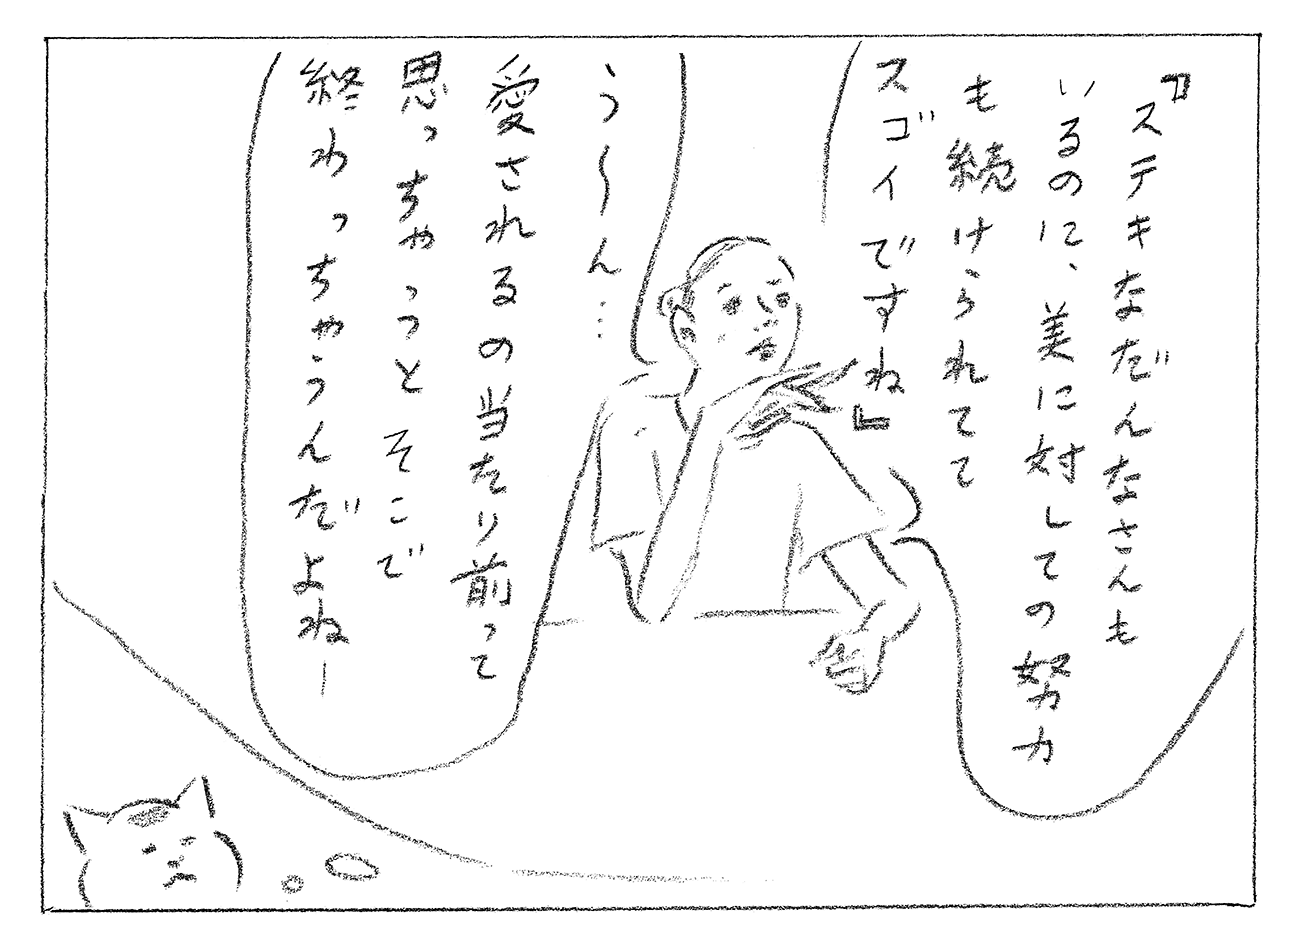 『ステキなだんなさんも
いるのに、美に対しての努力
も続けられてて
スゴイですね』
う〜ん…
愛されるの当たり前って
思っちゃうっとそこで
終わっちゃうんだよねー